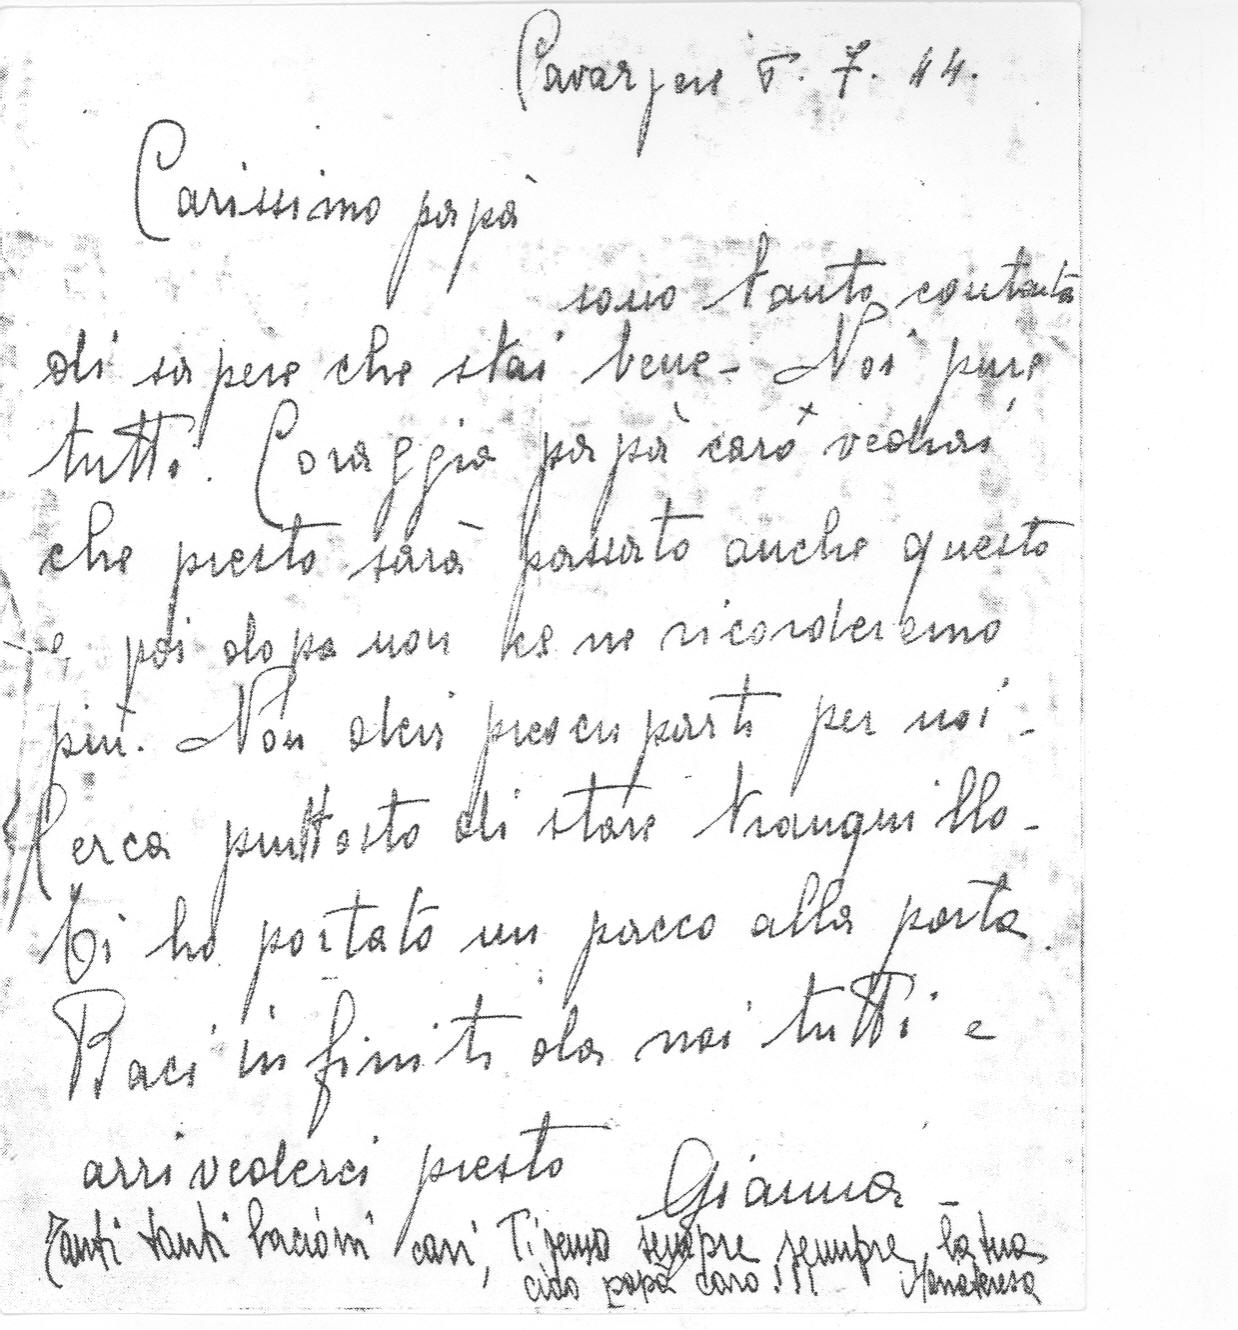 Cavargne 5. 7. 44.
Carissimo papà
sono tanto contenta
di sapere che stai bene - Noi pure
tutti. Coraggio papà caro vedrai
che presto sarà passato anche questo
e poi dopo non ce ne ricorderemo
più. Non devi preocuparti per noi -
Cerca piuttosto di stare tranquillo -
Ti ho portato un pacco alla porta.
Baci infiniti da noi tutti e
arrivederci presto
Gianna -
Tanti tanti bacioni cari, Ti penso sempre sempre, la tua
ciao papà caro!!! Mariateresa